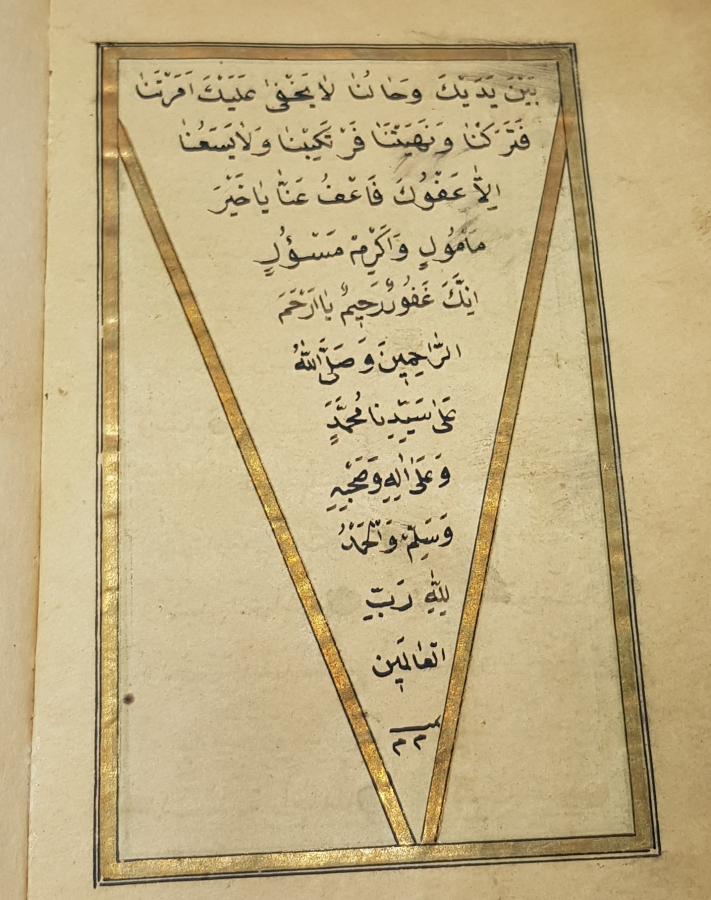 بَيْنَ يَدَيْكَ وَحَالُنَا لَا يَخْفٰى عَلَيْكَ اَمَرْتَنَا
فَتَرَكْنَا وَنَهَيْتَنَا فَرْتَكَبْنَا وَلَا يَسَعُنَا
اِلَّا عَفْوُكَ فَاعْفُ عَنَّا يَا خَيْرَ
مَأْمُولٍ وَاَكْرَمِ مَسْؤُلٍ
اِنَّكَ غَفُورٌ رَحِيمٌ يَا اَرْحَمَ
الرَّاحِمِينَ وَصَلَّى اللّٰهُ
عَلٰى سَيِّدِنَا مُحَمَّدٍ
وَعَلٰى اٰلِهِ وَصَحْبِهِ
وَسَلِّمْ وَالْحَمْدُ
لِلّٰهِ رَبِّ
الْعَالَمِينَ